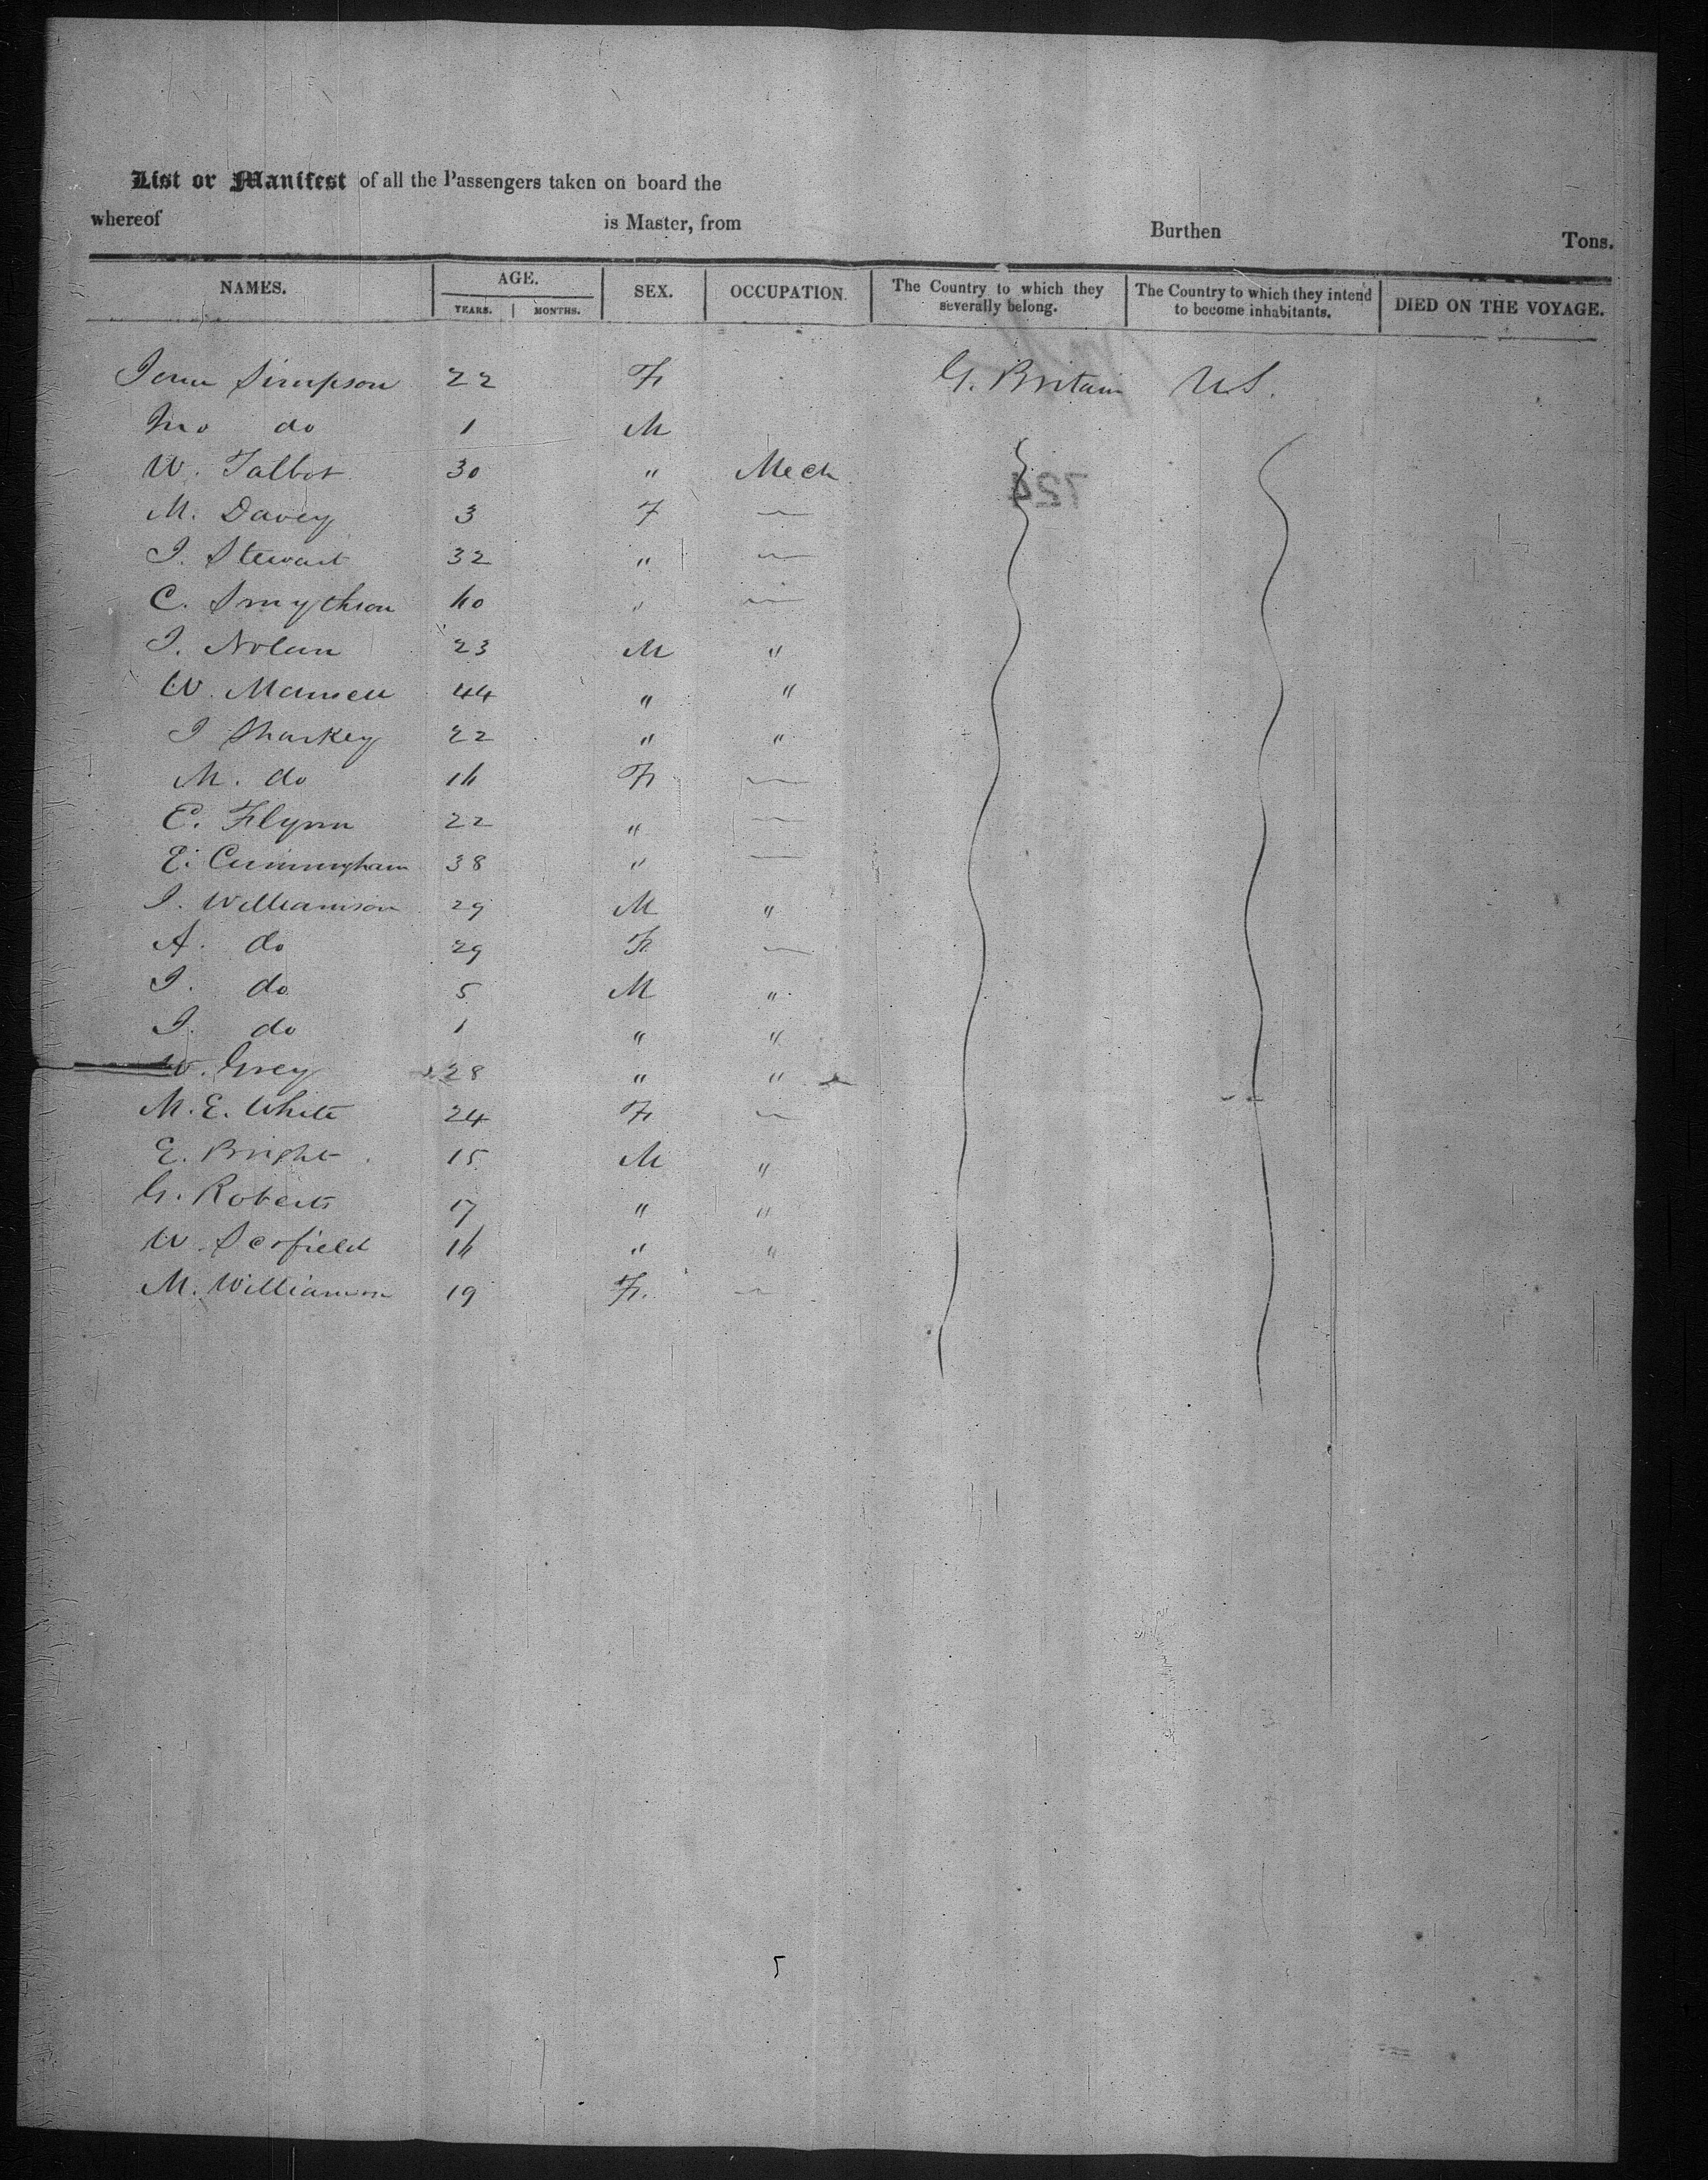 List or Manifest of all the Passengers taken on board the
whereof is Master, from Burthen Tons.
NAMES. AGE. YEARS. MONTHS. SEX. OCCUPATION. The Country to which they severally belong. The Country to which they intend to become inhabitants. DIED ON THE VOYAGE.
Simpson 22 F G. Britain U.S.
Jno do 1 M
W. Talbot 30 " Mech
M. Davey 3 F —
J. Stewart 32 " —
C. Smythson 40 " —
J. Nolan 23 M "
W. Mansell 44 " "
J Sharkey 22 " "
M. do 16 F —
E. Flynn 22 " —
E. Cunningham 38 " —
J. Williamson 29 M "
A. do 29 F —
J. do 5 M "
J. do 1 " "
W. Grey 28 " "
M. E. White 24 F —
E. Bright 15 M "
G. Roberts 17 " "
W Scofield 16 " "
M. Williamson 19 F. —
724